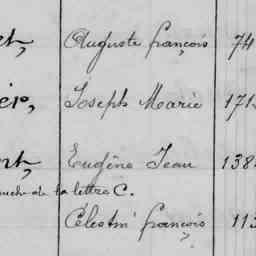 Auguste françois 74
Joseph Marie 171
Eugène Jean 138
de la lettre C.
Célestin françois 113